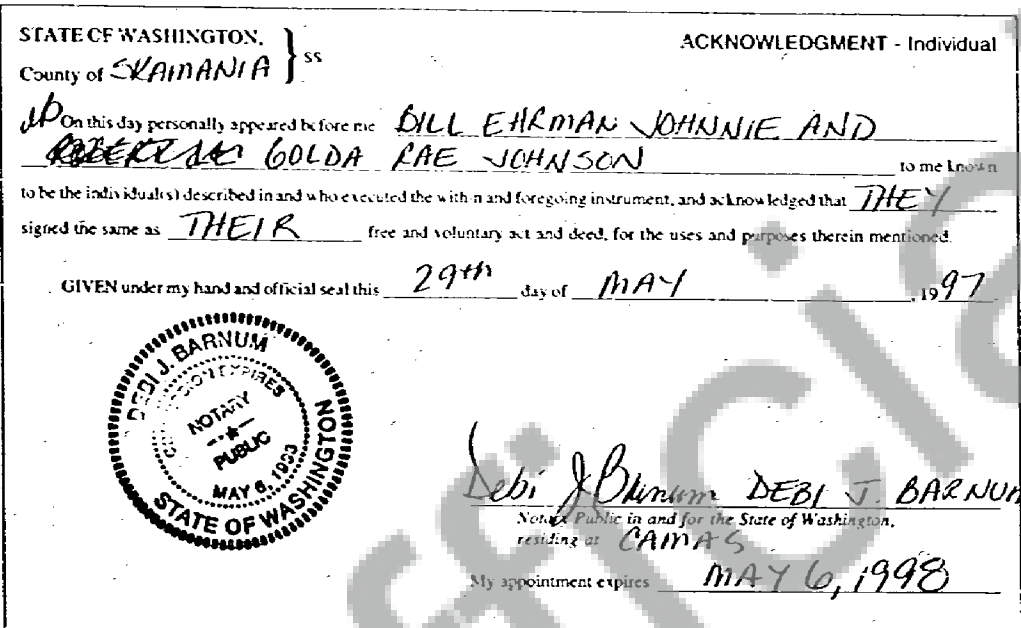 STATE OF WASHINGTON,
County of SKAMANIA } ss
ACKNOWLEDGMENT - Individual
On this day personally appeared before me BILL EHRMAN JOHNNIE AND
GOLDA RAE JOHNSON to me known
to be the individual(s) described in and who executed the within and foregoing instrument, and acknowledged that THEY
signed the same as THEIR free and voluntary act and deed, for the uses and purposes therein mentioned.
GIVEN under my hand and official seal this 29th day of MAY, 1997
DEBI J. BARNUM
COMMISSION EXPIRES
NOTARY
PUBLIC
MAY 6, 1998
STATE OF WASHINGTON
Debi J Barnum DEBI J. BARNUM
Notary Public in and for the State of Washington,
residing at CAMAS
My appointment expires MAY 6, 1998